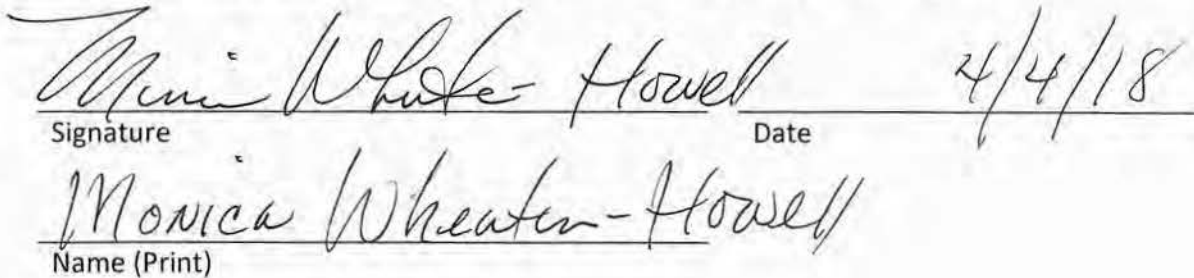 Monica Wheaton-Howell 4/4/18
Signature Date
Monica Wheaton-Howell
Name (Print)